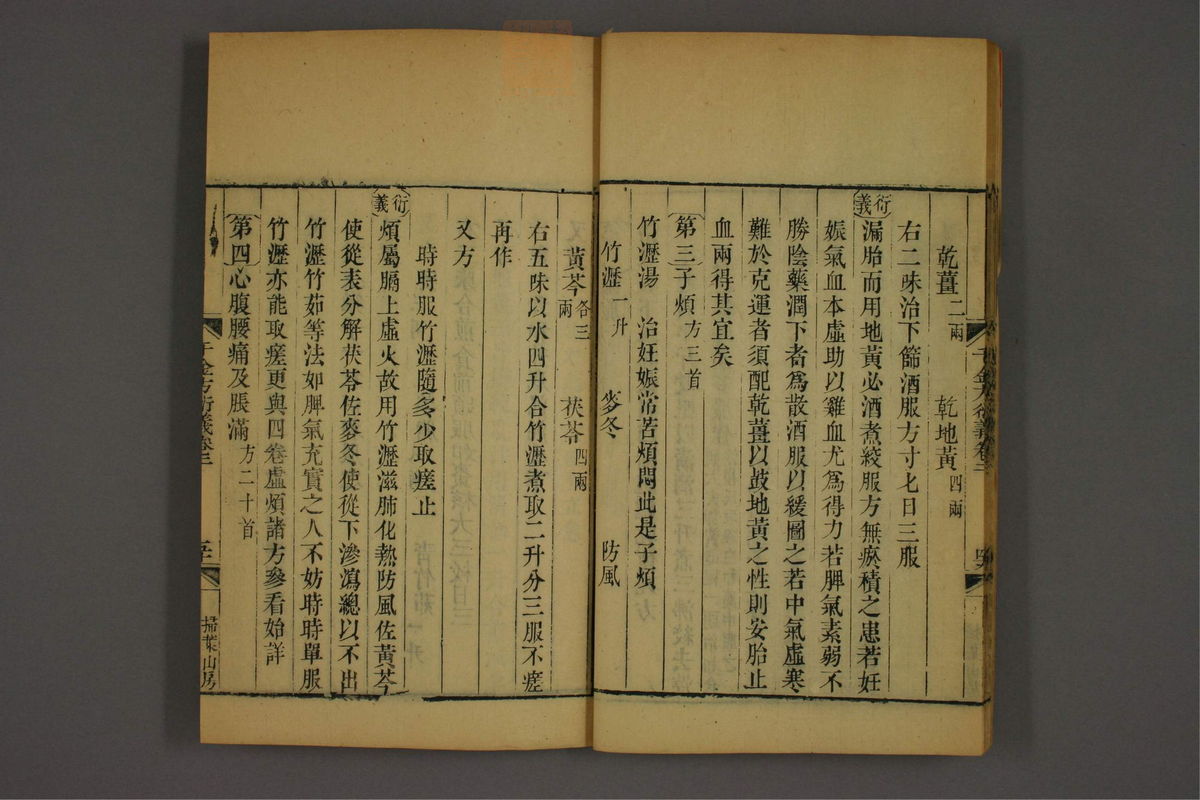 乾薑二兩　乾地黃四兩
右二味治下篩酒服方寸匕日三服
衍義
漏胎而用地黃必酒煮絞服方無瘀積之患若妊
娠氣血本虛助以雞血尤爲得力若脾氣素弱不
勝陰藥潤下者爲散酒服以緩圖之若中氣虛寒
難於克運者須配乾薑以鼓地黃之性則安胎止
血兩得其宜矣
第三子煩方三首
竹瀝湯　治妊娠常苦煩悶此是子煩方
竹瀝一升　麥冬　防風
黃芩各三兩　茯苓四兩
右五味以水四升合竹瀝煮取二升分三服不瘥
再作
又方
時時服竹瀝隨多少取瘥止
衍義
煩屬膈上虛火故用竹瀝滋肺化熱防風佐黃芩
使從表分解茯苓佐麥冬使從下滲瀉總以不出
竹瀝竹茹等法如脾氣充實之人不妨時時單服
竹瀝亦能取瘥更與四卷虛煩諸方參看始詳
第四心腹腰痛及脹滿方二十首
千金方衍義卷二
掃葉山房